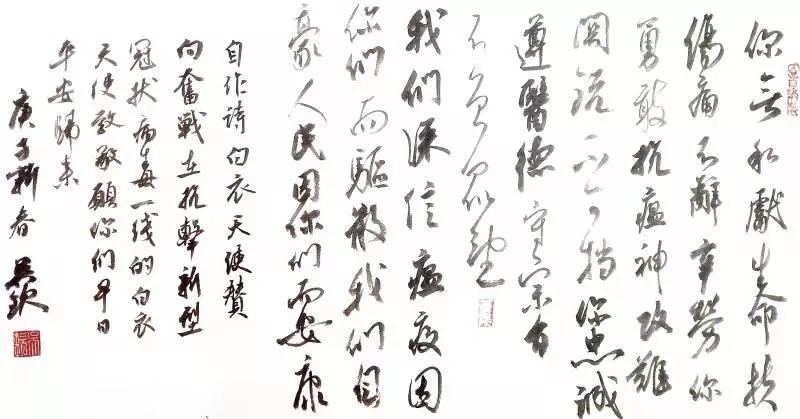 你无私献生命扶
伤痛不辞辛劳你
勇敢抗瘟神攻难
关
你忠诚
遵医德守
不负众望
我们深信瘟疫因
你们而驱散我们自
豪人民因你们而安康
自作诗白衣天使赞
向奋战在抗击新型
冠状病毒一线的白衣
天使致敬愿你们早日
平安归来
庚子新春